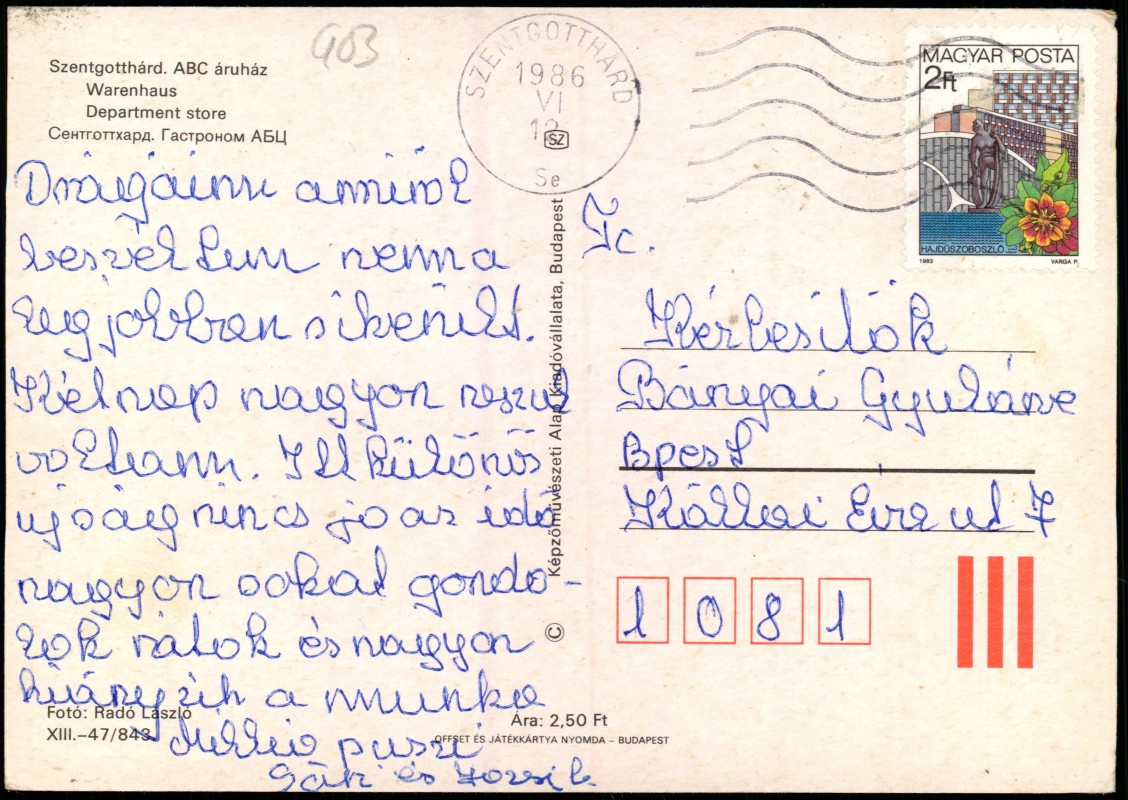 903
Szentgotthárd. ABC áruház
Warenhaus
Department store
Сентготтхард. Гастроном АБЦ
SZENTGOTTHÁRD
1986
VI
12
SZ
Se
MAGYAR POSTA
2Ft
HAJDÚSZOBOSZLÓ
1983 VARGA P.
Drágáim amiröl
beszéltem nem a
leg jobban sikerült.
Két nap nagyon rosszul
voltam. Itt különös
ujság nincs jo az idő
nagyon sokat gondo-
lok rátok és nagyon
hiányzik a munka
Millio puszi
és Jozsi
Képzőművészeti Alap Kiadóvállalata, Budapest
©
Tc.
Kézbesitök
Bányai Gyuláné
Bpest
Kállai Éva ut 7
1 0 8 1
Fotó: Radó László
XIII.–47/843
Ára: 2,50 Ft
OFFSET ÉS JÁTÉKKÁRTYA NYOMDA – BUDAPEST